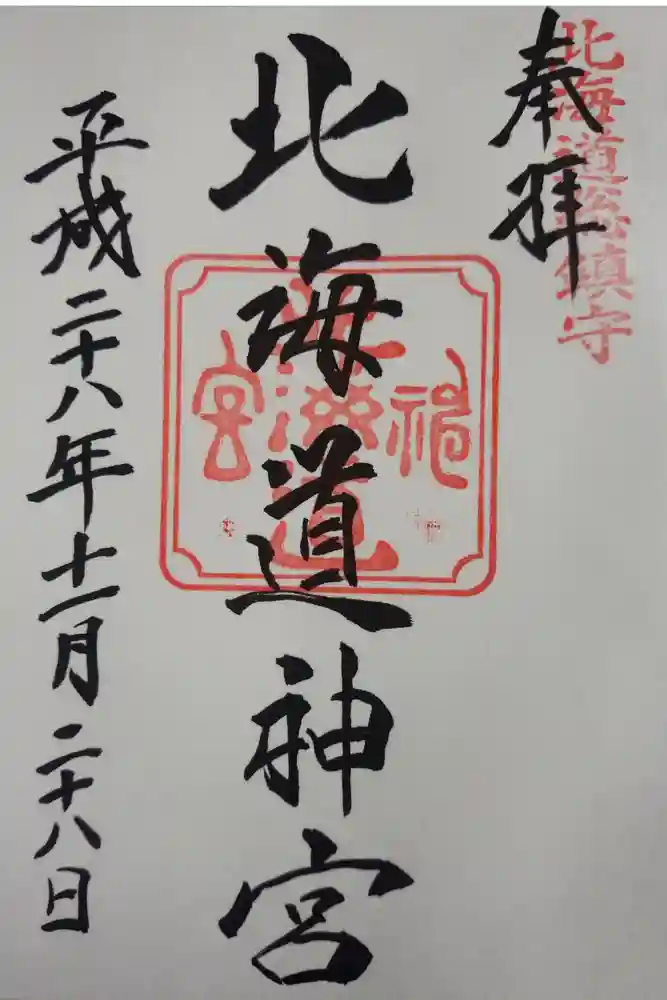 奉拝
北海道総鎮守
北海道神宮
北海道神宮
平成二十八年十一月二十八日